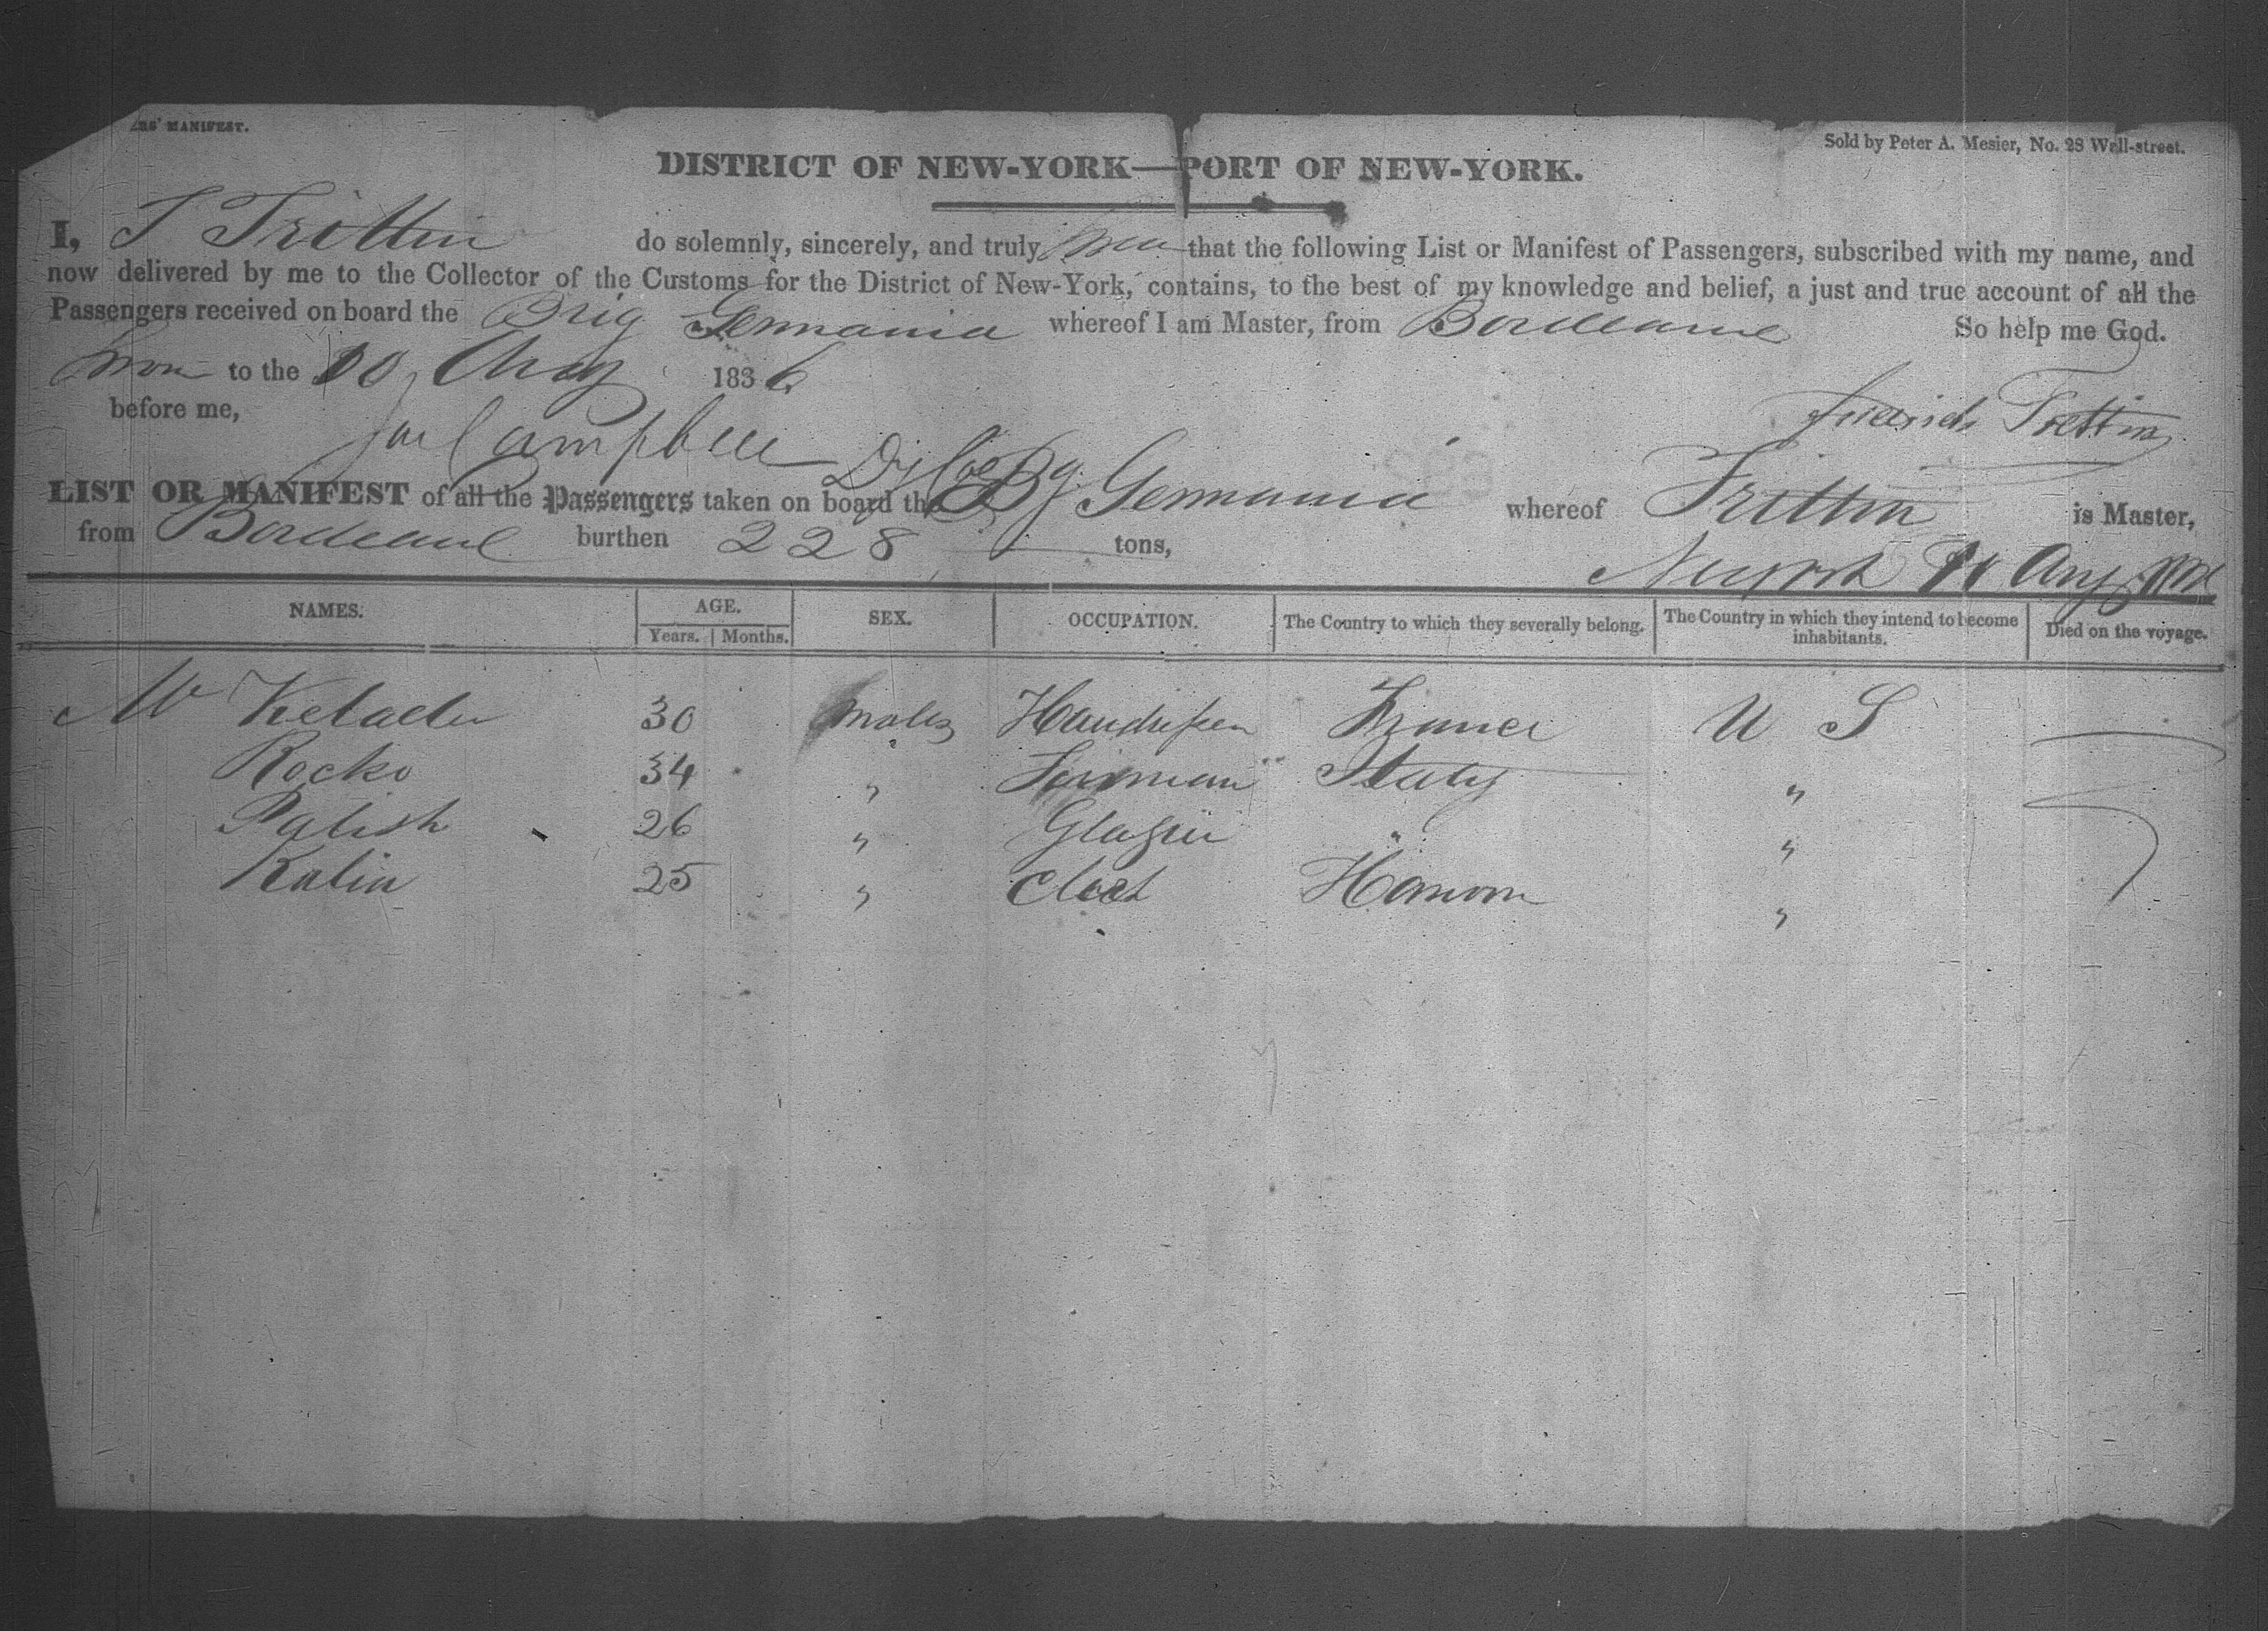 MANIFEST.
Sold by Peter A. Mesier, No. 28 Wall-street.
DISTRICT OF NEW-YORK—PORT OF NEW-YORK.
I, Trittin do solemnly, sincerely, and truly that the following List or Manifest of Passengers, subscribed with my name, and
now delivered by me to the Collector of the Customs for the District of New-York, contains, to the best of my knowledge and belief, a just and true account of all the
Passengers received on board the Brig Germania whereof I am Master, from Bordeaux So help me God.
to the 10 1836
before me, Trittin
Campbell
LIST OR MANIFEST of all the Passengers taken on board the Bg Germania whereof Trittin is Master,
from Bordeaux burthen 228 tons,
NAMES. AGE. SEX. OCCUPATION. The Country to which they severally belong. The Country in which they intend to become inhabitants. Died on the voyage.
Years. Months.
Mr 30 Males France U S
Rocko 34 " Italy "
Palish 26 " Glazier " "
Kalin 25 " "